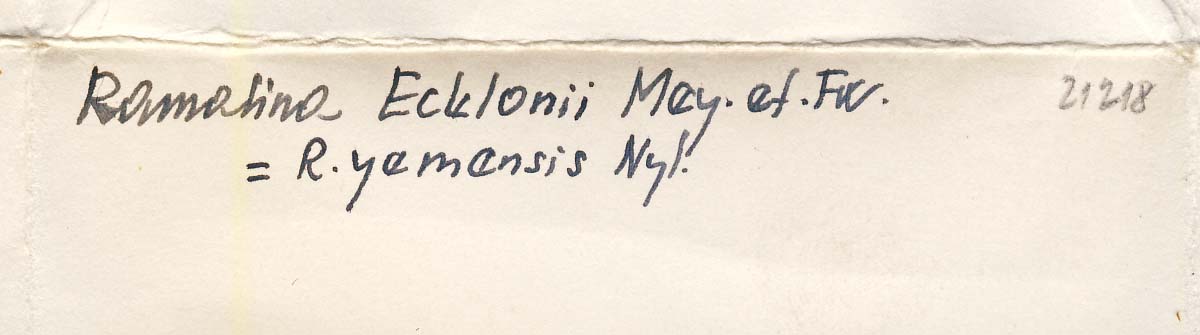 Ramalina Ecklonii Mey. et. Fw. 21218
= R. yemensis Nyl.